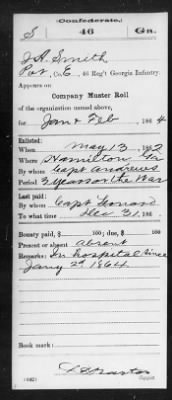 (Confederate.)
S 46 Ga.
J A Smith
Pvt, Co. E, 46 Reg't Georgia Infantry.
Appears on
Company Muster Roll
of the organization named above,
for Jan & Feb, 1864
Enlisted:
When May 13, 1862
Where Hamilton Ga
By whom Capt Andrews
Period 3 years or the War
Last paid:
By whom Capt Leonard
To what time Dec 31, 186
Bounty paid $ 100; due $ 100
Present or absent Absent
Remarks: In hospital since
Jany 2d 1864.
Book mark:
(642)
Copyist.